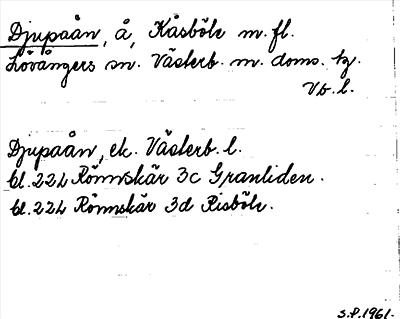 Djupaån, å, Kåsböle m.fl.
Lövångers sn. Västerb. m. doms. tg.
Vb. l.
Djupaån, ek. Västerb. l.
bl. 22L Rönnskär 3c Granliden.
bl. 22L Rönnskär 3d Risböle.
S.P. 1961.